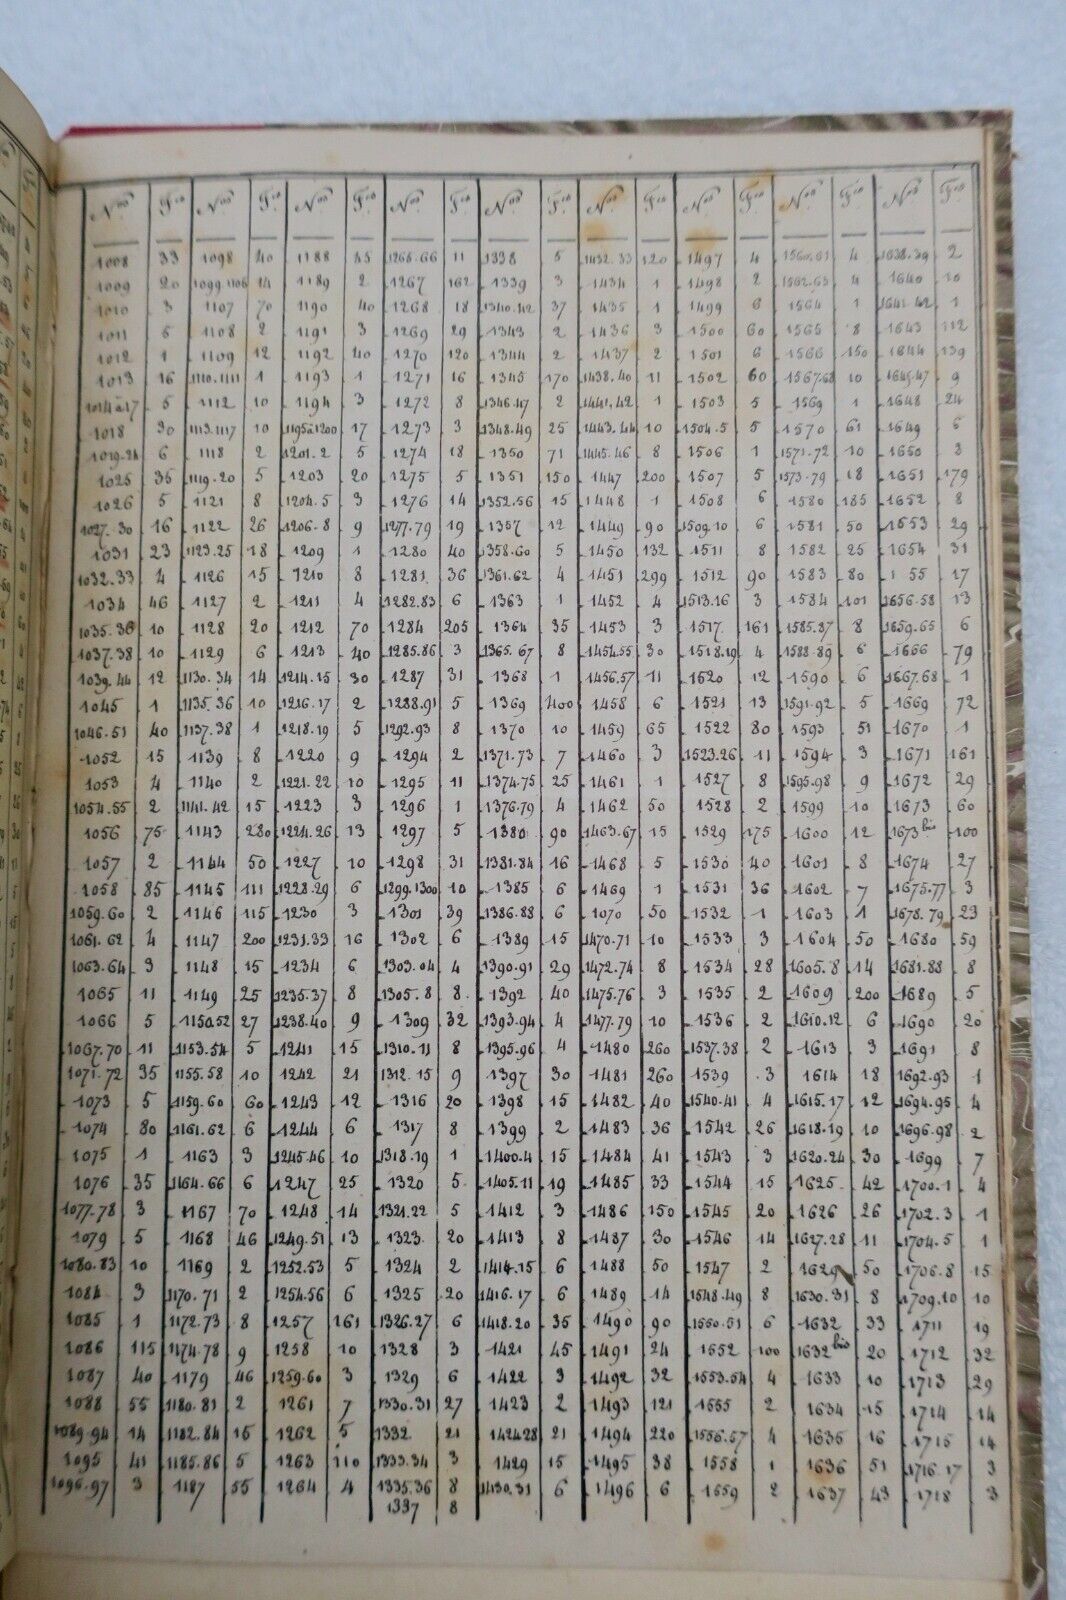 Nos Fcs Nos Fcs Nos Fcs Nos Fcs Nos Fcs Nos Fcs Nos Fcs Nos Fcs Nos Fcs
1008 33 1098 40 1188 1268.66 11 1338 5 1432.33 120 1497 4 1560.61 4 1638.39 2
1009 20 1099.1106 14 1189 2 1267 162 1339 3 1434 1 1498 2 1562.63 4 1640 10
1010 3 1107 70 1190 40 1268 18 1340.42 37 1435 1 1499 6 1564 1 1641.42 1
1011 5 1108 2 1191 3 1269 29 1343 2 1436 3 1500 60 1565 8 1643 112
1012 1 1109 12 1192 40 1270 120 1344 2 1437 2 1501 6 1566 150 1644 139
1013 16 1110.1111 1 1193 1 1271 16 1345 170 1438.40 11 1502 60 1567.68 10 1645.47 9
1014 à 17 5 1112 10 1194 3 1272 8 1346.47 2 1441.42 1 1503 5 1569 1 1648 24
1018 30 1113.1117 10 1195 à 1200 17 1273 3 1348.49 25 1443.44 10 1504.5 5 1570 61 1649 6
1019.24 6 1118 2 1201.2 5 1274 18 1350 71 1445.46 8 1506 1 1571.72 10 1650 3
1025 36 1119.20 5 1203 20 1275 5 1351 150 1447 200 1507 5 1573.79 18 1651 179
1026 5 1121 8 1204.5 3 1276 14 1352.56 15 1448 1 1508 6 1580 185 1652 8
1027.30 16 1122 26 1206.8 9 1277.79 19 1357 12 1449 90 1509.10 6 1581 50 1653 29
1031 23 1123.25 18 1209 1 1280 40 1358.60 5 1450 132 1511 8 1582 25 1654 31
1032.33 4 1126 15 1210 8 1281 36 1361.62 4 1451 299 1512 90 1583 80 1 55 17
1034 46 1127 2 1211 4 1282.83 6 1363 1 1452 4 1513.16 3 1584 101 1656.58 13
1035.36 10 1128 20 1212 70 1284 205 1364 35 1453 3 1517 161 1585.87 8 1659.65 6
1037.38 10 1129 6 1213 40 1285.86 3 1365.67 8 1454.55 30 1518.19 4 1588.89 6 1666 79
1039.44 12 1130.34 14 1214.15 30 1287 31 1368 1 1456.57 11 1520 12 1590 6 1667.68 1
1045 1 1135.36 10 1216.17 2 1288.91 5 1369 400 1458 6 1521 13 1591.92 5 1669 72
1046.51 40 1137.38 1 1218.19 5 1292.93 8 1370 10 1459 65 1522 80 1593 51 1670 1
1052 15 1139 8 1220 9 1294 2 1371.73 7 1460 3 1523.26 11 1594 3 1671 161
1053 4 1140 2 1221.22 10 1295 11 1374.75 25 1461 1 1527 8 1595.98 9 1672 29
1054.55 2 1141.42 15 1223 3 1296 1 1376.79 4 1462 50 1528 2 1599 10 1673 60
1056 75 1143 280 1224.26 13 1297 5 1380 90 1463.67 15 1529 175 1600 12 1673bis 100
1057 2 1144 50 1227 10 1298 31 1381.84 16 1468 5 1530 40 1601 8 1674 27
1058 85 1145 111 1228.29 6 1299.1300 10 1385 6 1469 1 1531 36 1602 7 1675.77 3
1059.60 2 1146 115 1230 3 1301 39 1386.88 6 1070 50 1532 1 1603 1 1678.79 23
1061.62 4 1147 200 1231.33 16 1302 6 1389 15 1470.71 10 1533 3 1604 50 1680 59
1063.64 3 1148 15 1234 6 1303.04 4 1390.91 29 1472.74 8 1534 28 1605.8 14 1681.88 8
1065 11 1149 25 1235.37 8 1305.8 8 1392 40 1475.76 3 1535 2 1609 200 1689 5
1066 5 1150.52 27 1238.40 9 1309 32 1393.94 4 1477.79 10 1536 2 1610.12 6 1690 20
1067.70 11 1153.54 5 1241 15 1310.11 8 1395.96 4 1480 260 1537.38 2 1613 3 1691 8
1071.72 35 1155.58 10 1242 21 1312.15 9 1397 30 1481 260 1539 3 1614 18 1692.93 1
1073 5 1159.60 60 1243 12 1316 20 1398 15 1482 40 1540.41 4 1615.17 12 1694.95 4
1074 80 1161.62 6 1244 6 1317 8 1399 2 1483 36 1542 26 1618.19 10 1696.98 2
1075 1 1163 3 1245.46 10 1318.19 1 1400.4 15 1484 41 1543 3 1620.24 30 1699 7
1076 35 1164.66 6 1247 25 1320 5 1405.11 19 1485 33 1544 15 1625 42 1700.1 4
1077.78 3 1167 70 1248 14 1321.22 5 1412 3 1486 150 1545 20 1626 26 1702.3 1
1079 5 1168 46 1249.51 13 1323 20 1413 8 1487 30 1546 14 1627.28 11 1704.5 1
1080.83 10 1169 2 1252.53 5 1324 2 1414.15 6 1488 50 1547 2 1629 50 1706.8 15
1084 3 1170.71 2 1254.56 6 1325 20 1416.17 6 1489 14 1548.49 8 1630.31 8 1709.10 10
1085 1 1172.73 8 1257 161 1326.27 6 1418.20 35 1490 90 1550.51 6 1632 33 1711 19
1086 115 1174.78 9 1258 10 1328 3 1421 45 1491 24 1552 100 1632bis 20 1712 32
1087 40 1179 46 1259.60 3 1329 6 1422 3 1492 32 1553.54 4 1633 10 1713 29
1088 55 1180.81 2 1261 7 1330.31 27 1423 2 1493 121 1555 2 1634 15 1714 14
1089.94 14 1182.84 15 1262 5 1332 21 1424.28 21 1494 220 1556.57 4 1635 16 1715 14
1095 41 1185.86 5 1263 110 1333.34 3 1429 15 1495 38 1558 1 1636 51 1716.17 3
1096.97 3 1187 55 1264 4 1335.36 8 1430.31 6 1496 6 1559 2 1637 43 1718 3
1337 8